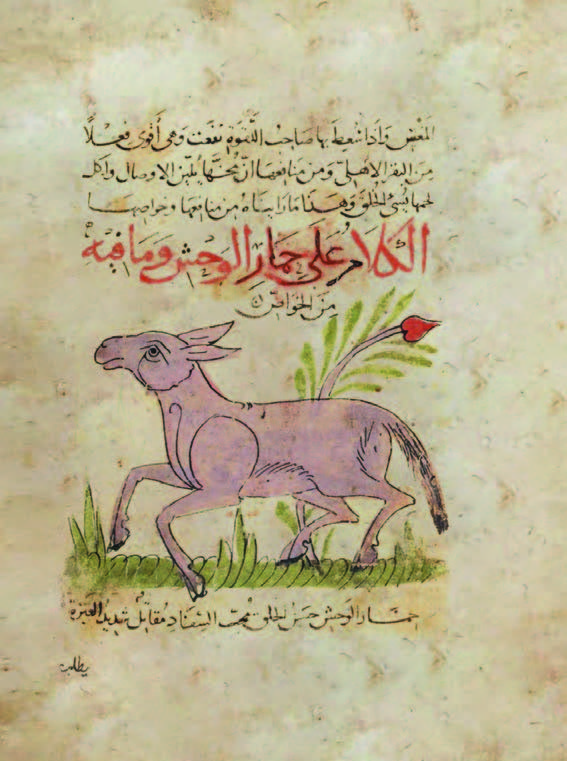 المغس واذا سُعط بها صاحب اللقوة نفعت وهي أقوى فعلاً
من البقر الأهليّ ومن منافعها انّ مخّها يُليّن الاوصال واكل
لحمها يُسيّ الخلق وهذا ما رايناه من منافعها وخواصها
الكلام على حمار الوحش وما فيه
من الخواصّ
حمار الوحش حسن الخلق يحب السفاد مقاتل شديد الغيرة
يطلب